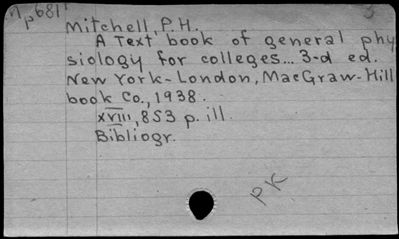 Mitchell, P.H.
A Text book of general phy
siology for colleges... 3-d ed.
New York-London, MacGraw-Hill
book Co., 1938.
XVIII, 853 p. ill.
Bibliogr.
PK